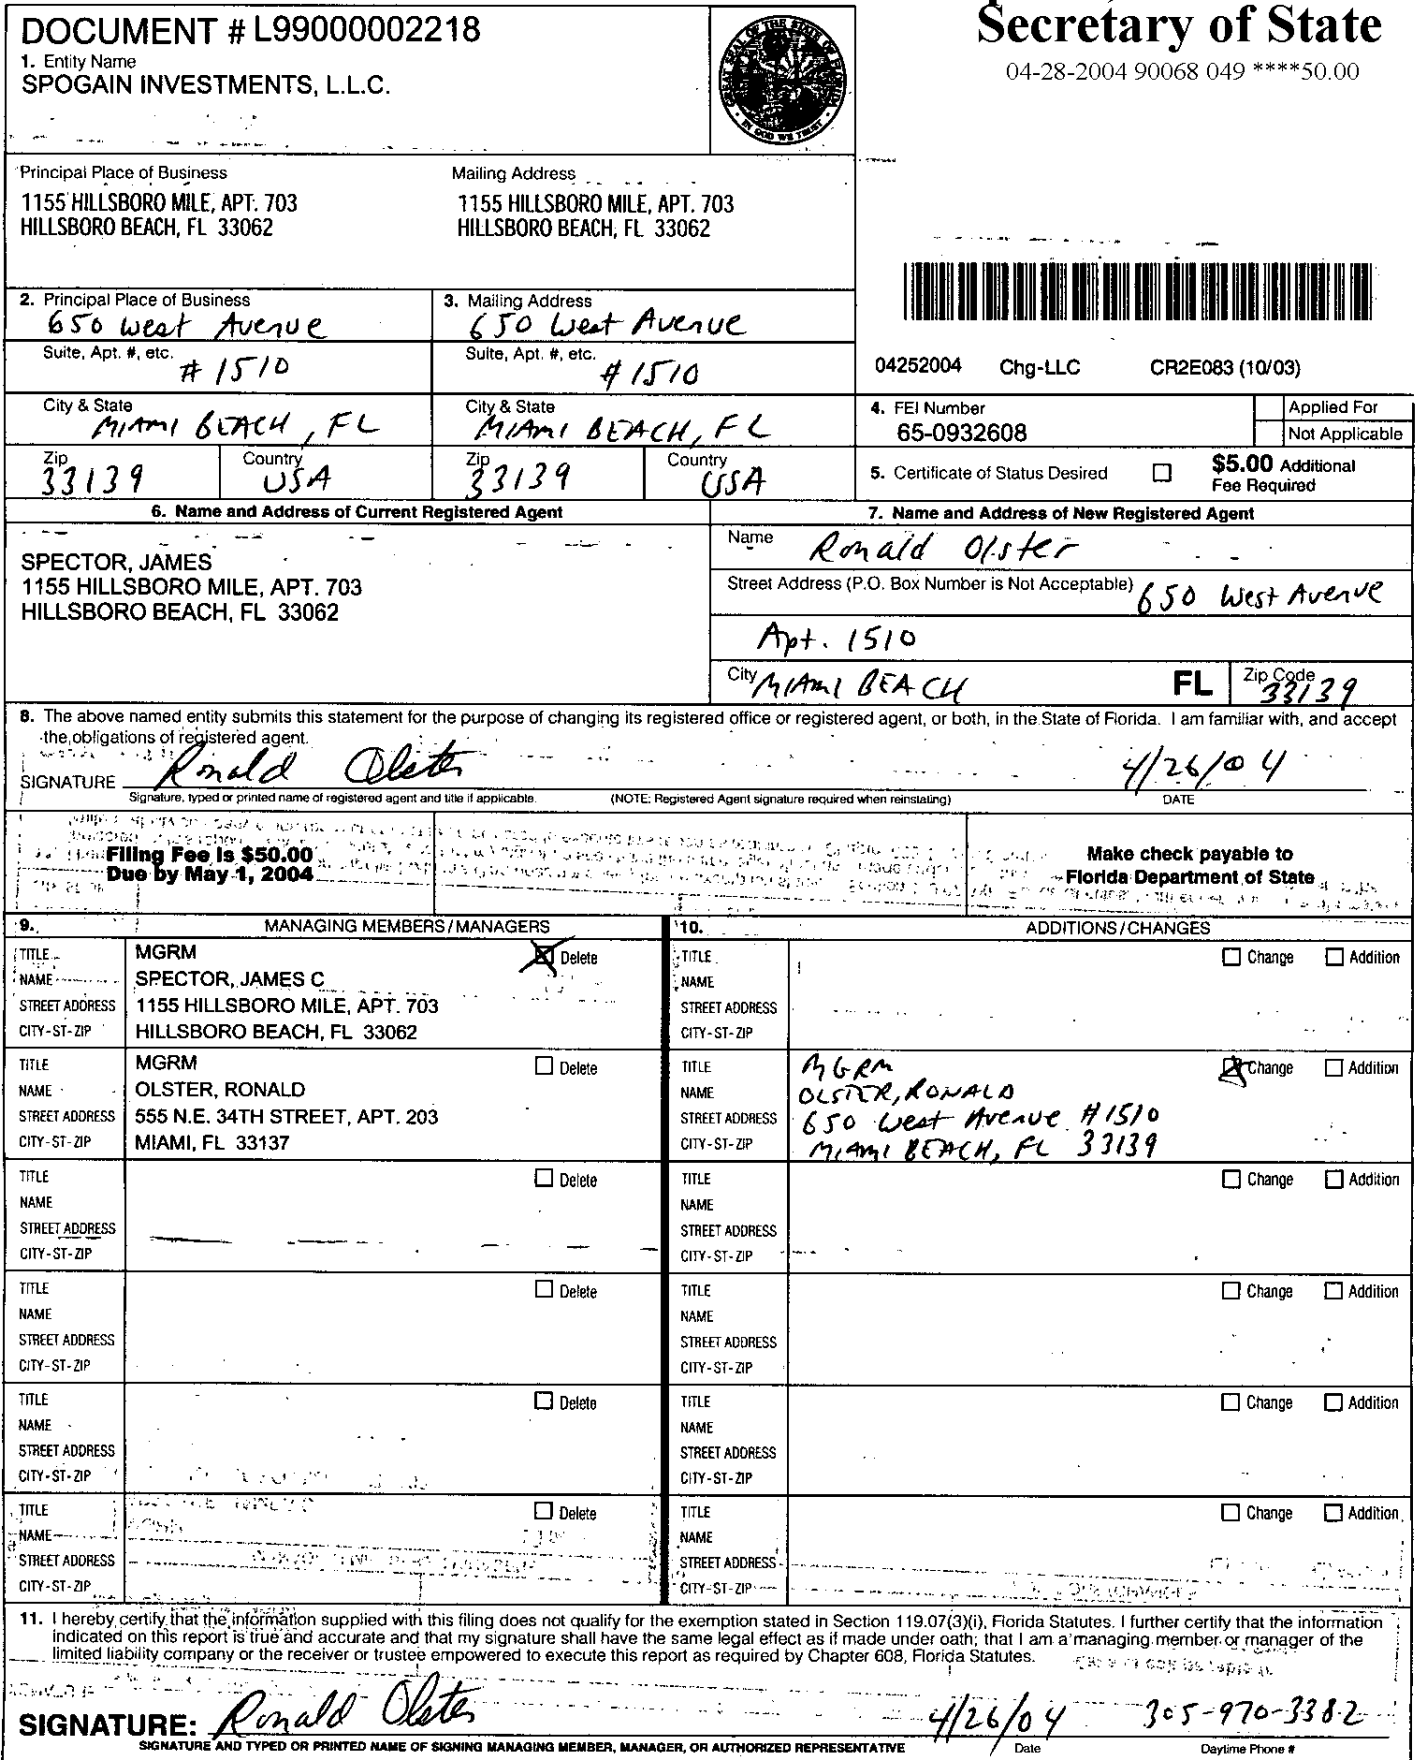 DOCUMENT # L99000002218
1. Entity Name
SPOGAIN INVESTMENTS, L.L.C.
GREAT SEAL OF THE STATE OF FLORIDA
IN GOD WE TRUST
Secretary of State
04-28-2004 90068 049 ****50.00
Principal Place of Business
1155 HILLSBORO MILE, APT. 703
HILLSBORO BEACH, FL 33062
Mailing Address
1155 HILLSBORO MILE, APT. 703
HILLSBORO BEACH, FL 33062
2. Principal Place of Business
650 West Avenue
Suite, Apt. #, etc.
# 1510
City & State
MIAMI BEACH, FL
Zip
33139
Country
USA
3. Mailing Address
650 West Avenue
Suite, Apt. #, etc.
# 1510
City & State
MIAMI BEACH, FL
Zip
33139
Country
USA
04252004 Chg-LLC CR2E083 (10/03)
4. FEI Number
65-0932608
Applied For
Not Applicable
5. Certificate of Status Desired
$5.00 Additional
Fee Required
6. Name and Address of Current Registered Agent
SPECTOR, JAMES
1155 HILLSBORO MILE, APT. 703
HILLSBORO BEACH, FL 33062
7. Name and Address of New Registered Agent
Name Ronald Olster
Street Address (P.O. Box Number is Not Acceptable) 650 West Avenue
Apt. 1510
City MIAMI BEACH FL Zip Code 33139
8. The above named entity submits this statement for the purpose of changing its registered office or registered agent, or both, in the State of Florida. I am familiar with, and accept
the obligations of registered agent.
SIGNATURE Ronald Olster 4/26/04
Signature, typed or printed name of registered agent and title if applicable. (NOTE: Registered Agent signature required when reinstating) DATE
Filing Fee is $50.00
Due by May 1, 2004
Make check payable to
Florida Department of State
9. MANAGING MEMBERS/MANAGERS
TITLE MGRM Delete
NAME SPECTOR, JAMES C
STREET ADDRESS 1155 HILLSBORO MILE, APT. 703
CITY-ST-ZIP HILLSBORO BEACH, FL 33062
TITLE MGRM Delete
NAME OLSTER, RONALD
STREET ADDRESS 555 N.E. 34TH STREET, APT. 203
CITY-ST-ZIP MIAMI, FL 33137
TITLE Delete
NAME
STREET ADDRESS
CITY-ST-ZIP
TITLE Delete
NAME
STREET ADDRESS
CITY-ST-ZIP
TITLE Delete
NAME
STREET ADDRESS
CITY-ST-ZIP
TITLE Delete
NAME
STREET ADDRESS
CITY-ST-ZIP
10. ADDITIONS/CHANGES
TITLE Change Addition
NAME
STREET ADDRESS
CITY-ST-ZIP
TITLE MGRM Change Addition
NAME OLSTER, RONALD
STREET ADDRESS 650 West Avenue #1510
CITY-ST-ZIP MIAMI BEACH, FL 33139
TITLE Change Addition
NAME
STREET ADDRESS
CITY-ST-ZIP
TITLE Change Addition
NAME
STREET ADDRESS
CITY-ST-ZIP
TITLE Change Addition
NAME
STREET ADDRESS
CITY-ST-ZIP
TITLE Change Addition
NAME
STREET ADDRESS
CITY-ST-ZIP
11. I hereby certify that the information supplied with this filing does not qualify for the exemption stated in Section 119.07(3)(i), Florida Statutes. I further certify that the information
indicated on this report is true and accurate and that my signature shall have the same legal effect as if made under oath; that I am a managing member or manager of the
limited liability company or the receiver or trustee empowered to execute this report as required by Chapter 608, Florida Statutes.
SIGNATURE: Ronald Olster 4/26/04 305-970-3382
SIGNATURE AND TYPED OR PRINTED NAME OF SIGNING MANAGING MEMBER, MANAGER, OR AUTHORIZED REPRESENTATIVE Date Daytime Phone #